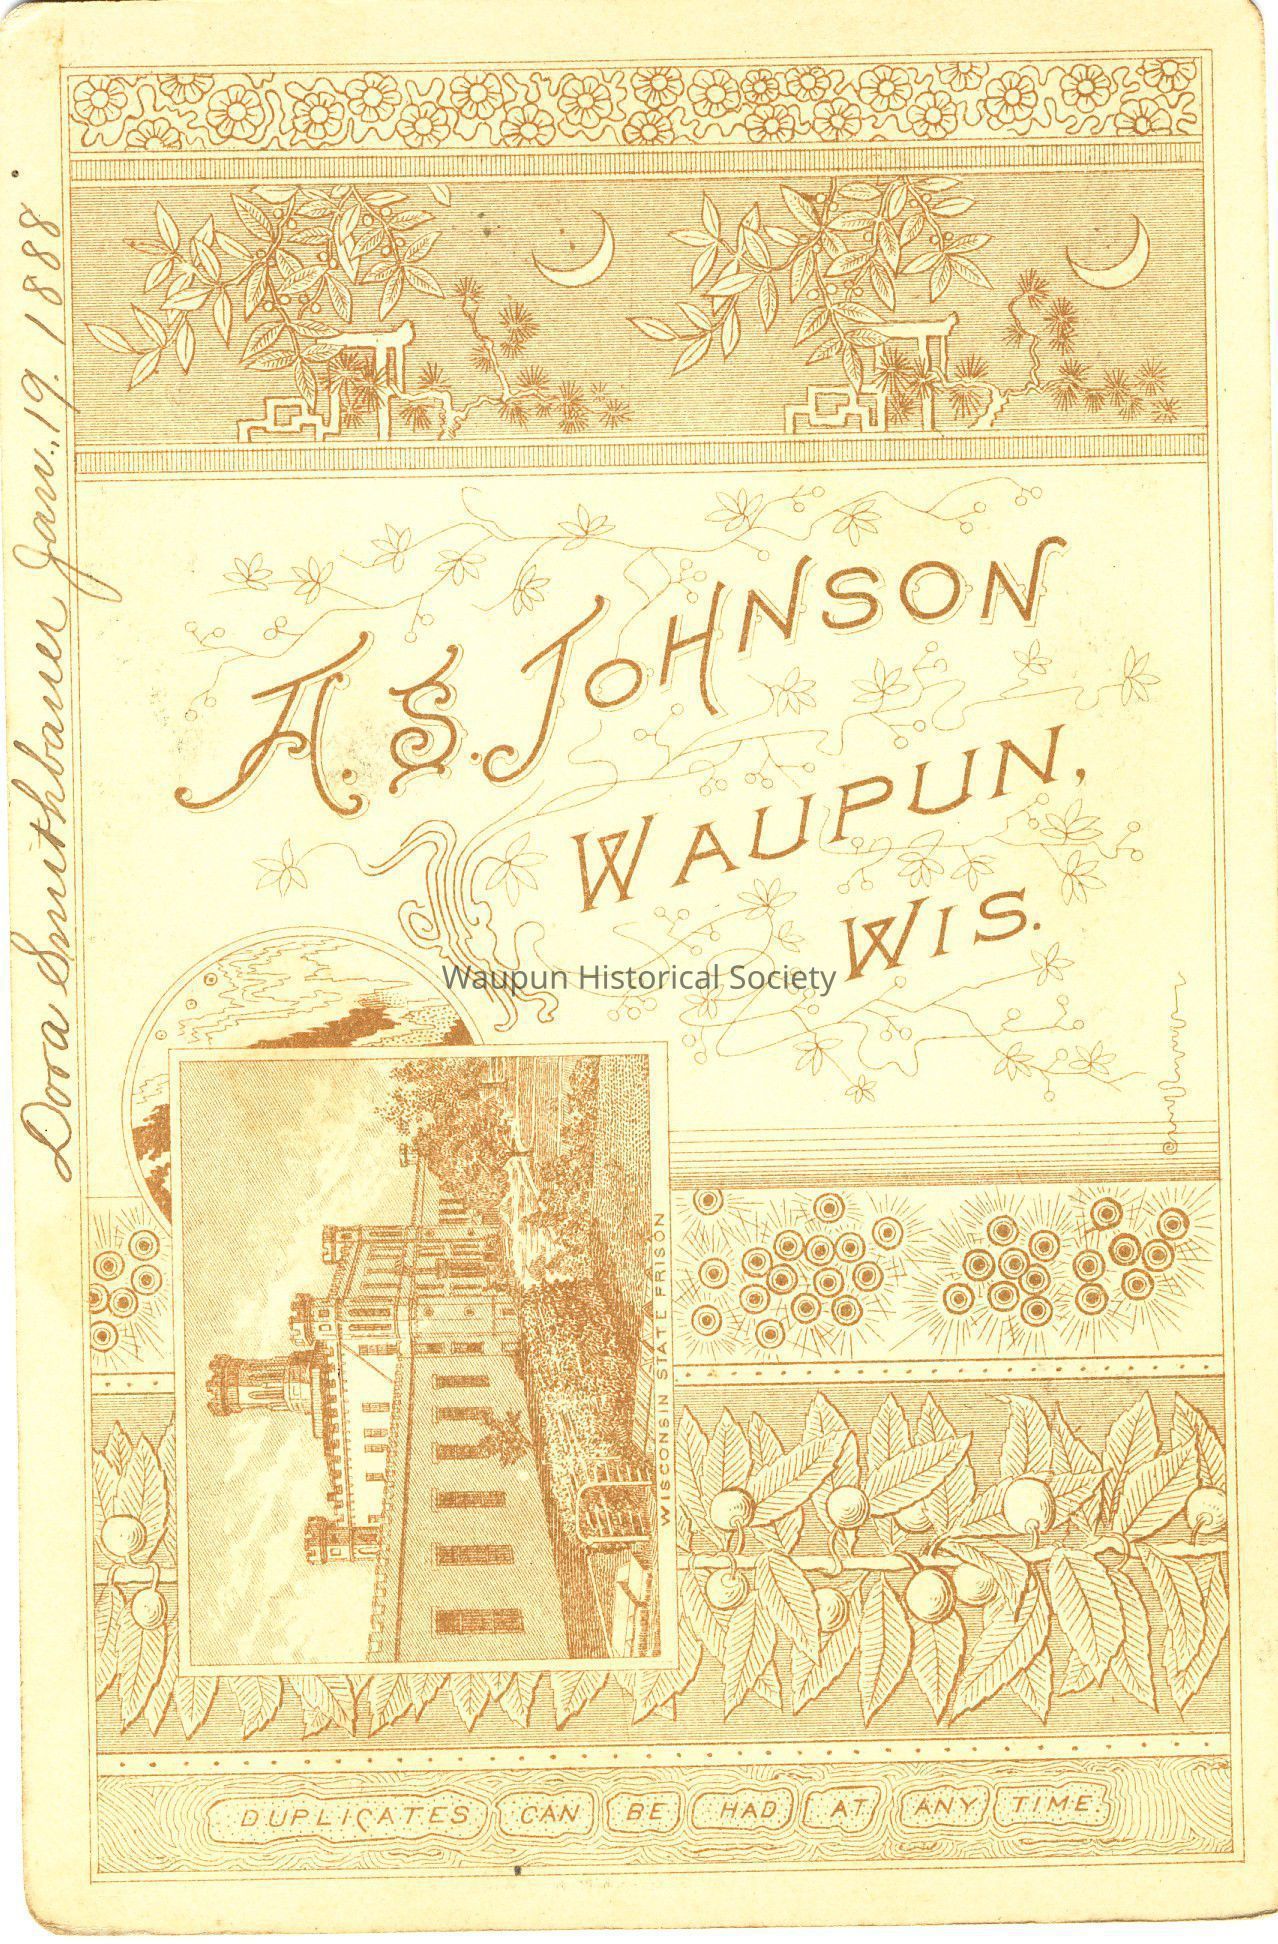 Dora Smithbauer Jan. 19. 1888
A. S. JOHNSON
WAUPUN,
WIS.
Waupun Historical Society
WISCONSIN STATE PRISON
DUPLICATES CAN BE HAD AT ANY TIME.